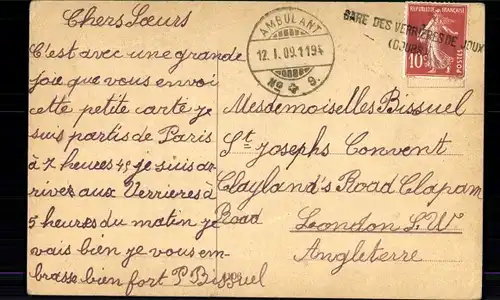 Chers Sœurs
C'est avec une grande
joie que vous envoi
cette petite carte je
suis partis de Paris
à 7 heures 45 je suis ar
rivez aux Verrieres à
5 heures du matin je
vais bien je vous em-
brasse bien fort P Bissuel
AMBULANT
12. I. 09. 1194
No 9.
GARE DES VERRIÈRES DE JOUX
(DOUBS)
RÉPUBLIQUE FRANÇAISE
10c
POSTES
Mesdemoiselles Bissuel
St Josephs Convent
Clayland's Road Clapam
Road London S.W
Angleterre